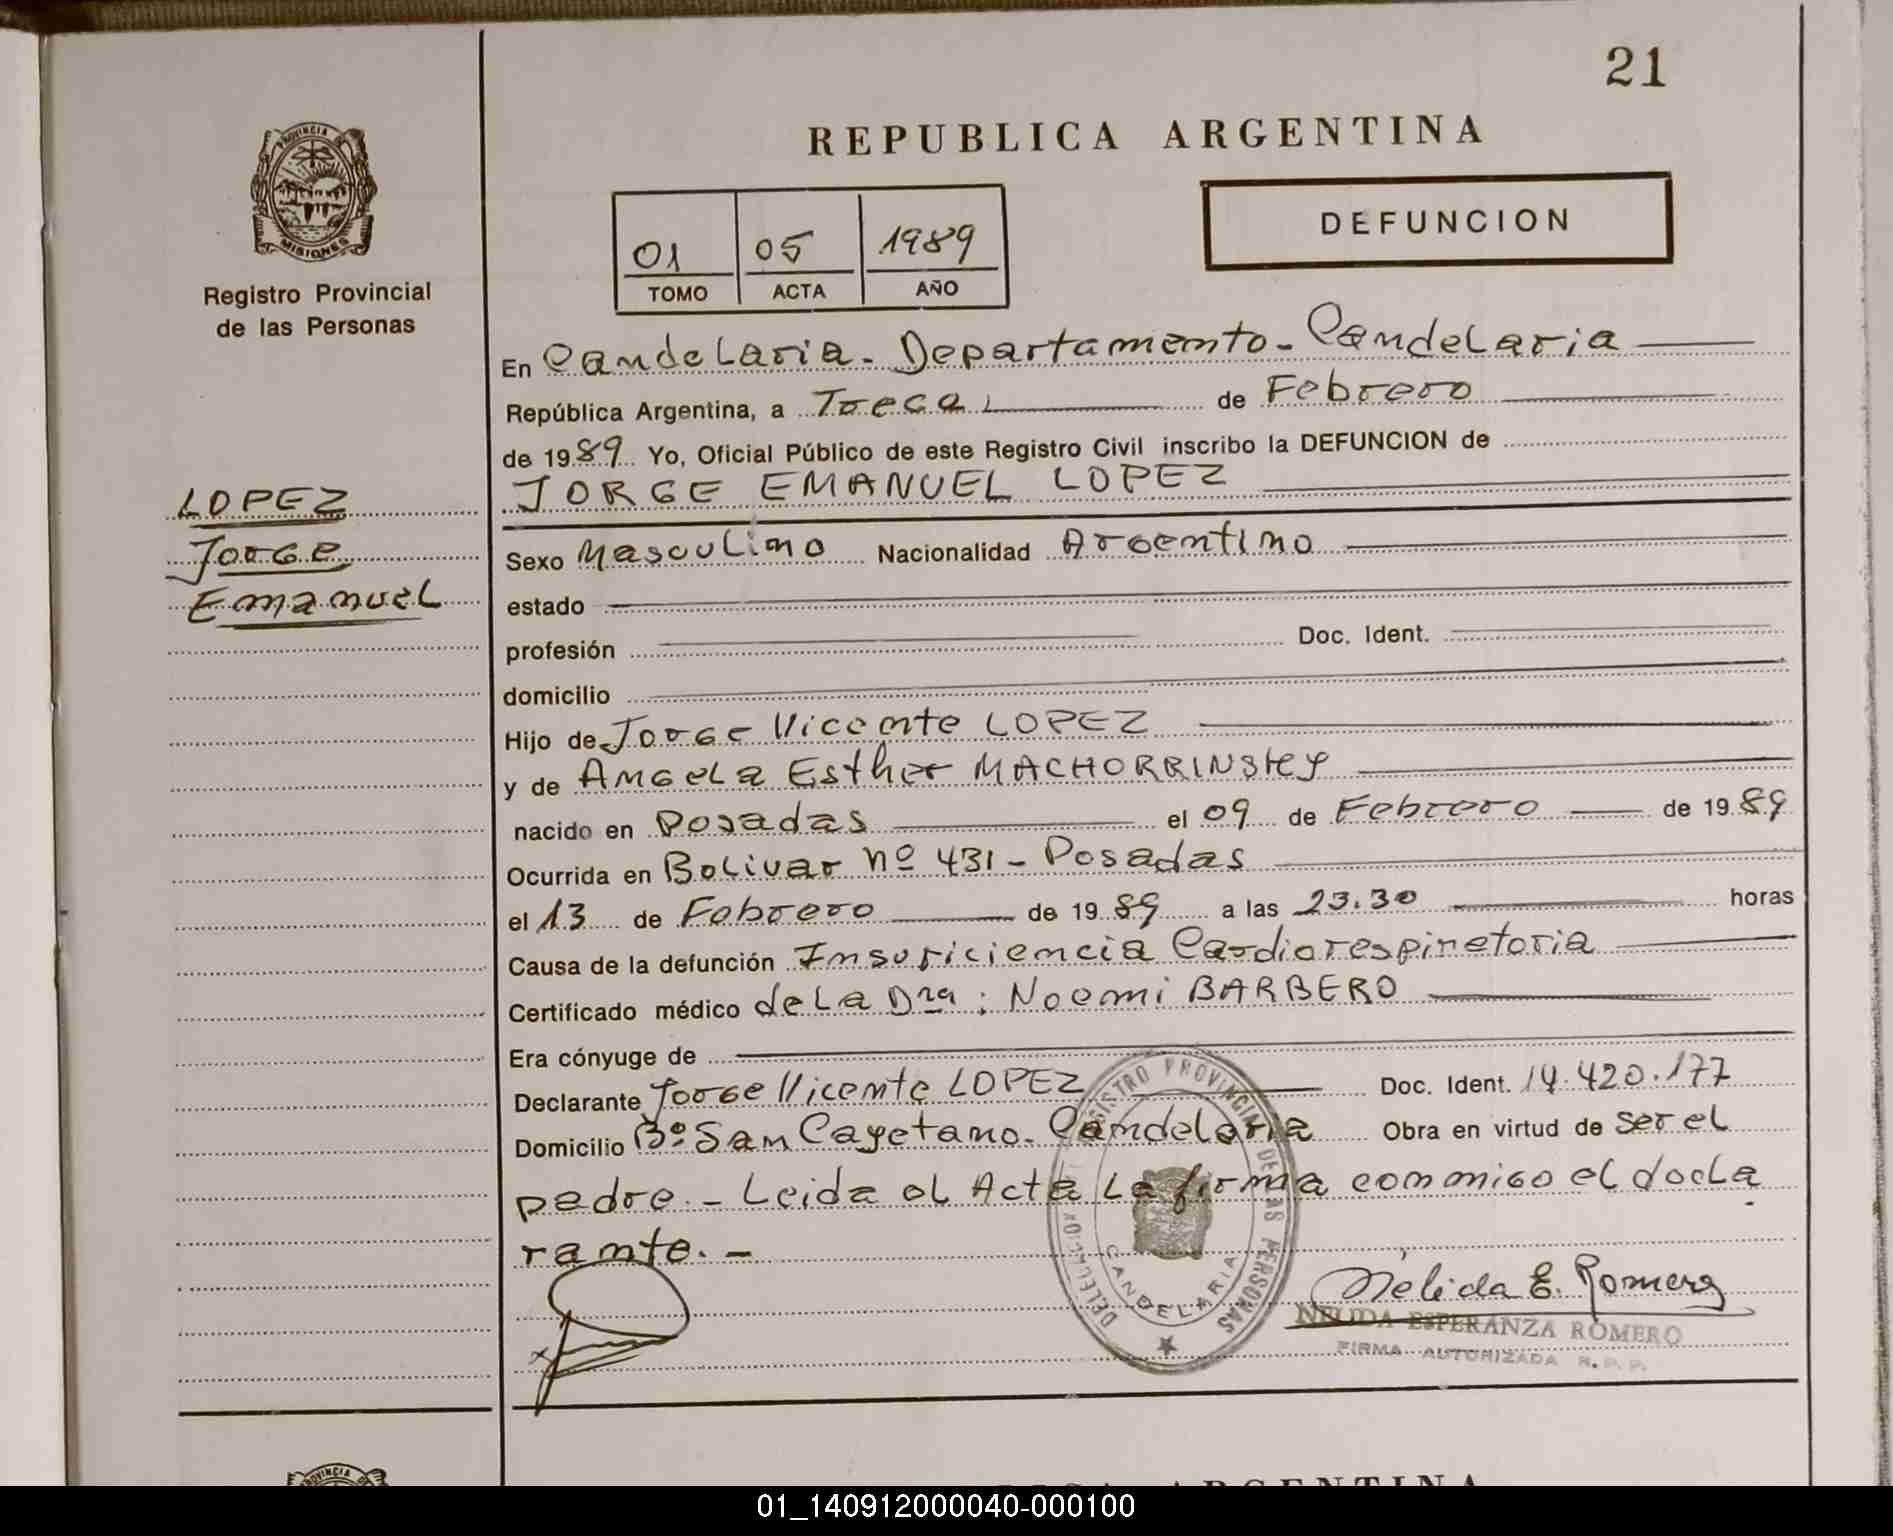 21
PROVINCIA DE
MISIONES
REPUBLICA ARGENTINA
DEFUNCION
01 05 1989
TOMO ACTA AÑO
Registro Provincial
de las Personas
En Candelaria - Departamento - Candelaria
República Argentina, a Trece de Febrero
de 1989 Yo, Oficial Público de este Registro Civil inscribo la DEFUNCION de
LOPEZ
Jorge
Emanuel
JORGE EMANUEL LOPEZ
Sexo Masculino Nacionalidad Argentino
estado
profesión Doc. Ident.
domicilio
Hijo de Jorge Vicente LOPEZ
y de Angela Esther MACHORRINSKY
nacido en Posadas el 09 de Febrero de 1989
Ocurrida en Bolivar nº 431 - Posadas
el 13 de Febrero de 1989 a las 23.30 horas
Causa de la defunción Insuficiencia Cardiorespiretoria
Certificado médico de la Dra : Noemi BARBERO
Era cónyuge de
Declarante Jorge Vicente LOPEZ Doc. Ident. 14.420.177
Domicilio Bº San Cayetano - Candelaria Obra en virtud de ser el
padre. - Leida el Acta la firma conmigo el decla
rante. -
REGISTRO PROVINCIAL DE LAS PERSONAS
CANDELARIA
Nélida E. Romero
NELIDA ESPERANZA ROMERO
FIRMA AUTORIZADA R. P. P.
PROVINCIA DE
REPUBLICA ARGENTINA
01_140912000040-000100